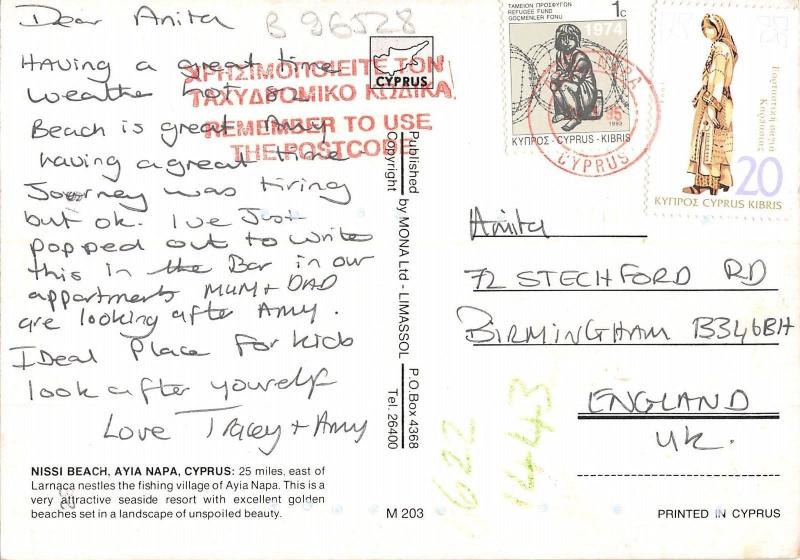 Dear Anita
B 96528
HAVING a great time
weather hot so
Beach is great Amy
having a great time
Journey was tiring
but ok. I've Just
popped out to write
this in the Bar in our
appartments MUM + DAD
are looking after AMY.
IDeal Place For kids
look after yourself
Love Tracey + Amy
NISSI BEACH, AYIA NAPA, CYPRUS: 25 miles, east of
Larnaca nestles the fishing village of Ayia Napa. This is a
very attractive seaside resort with excellent golden
beaches set in a landscape of unspoiled beauty.
ΧΡΗΣΙΜΟΠΟΙΕΙΤΕ ΤΟΝ
ΤΑΧΥΔΡΟΜΙΚΟ ΚΩΔΙΚΑ
REMEMBER TO USE
THE POSTCODE
CYPRUS
Published by MONA Ltd - LIMASSOL P.O.Box 4368
Copyright Tel. 26400
M 203
ΤΑΜΕΙΟΝ ΠΡΟΣΦΥΓΩΝ
REFUGEE FUND
GÖÇMENLER FONU
1c
1974
1993
ΚΥΠΡΟΣ - CYPRUS - KIBRIS
NAPA
95
CYPRUS
Εορταστική φορεσιά
Καρπασίας
20
ΚΥΠΡΟΣ CYPRUS KIBRIS
Anita
72 STECHFORD RD
BIRMINGHAM B346BH
ENGLAND
UK.
1622
1443
PRINTED IN CYPRUS